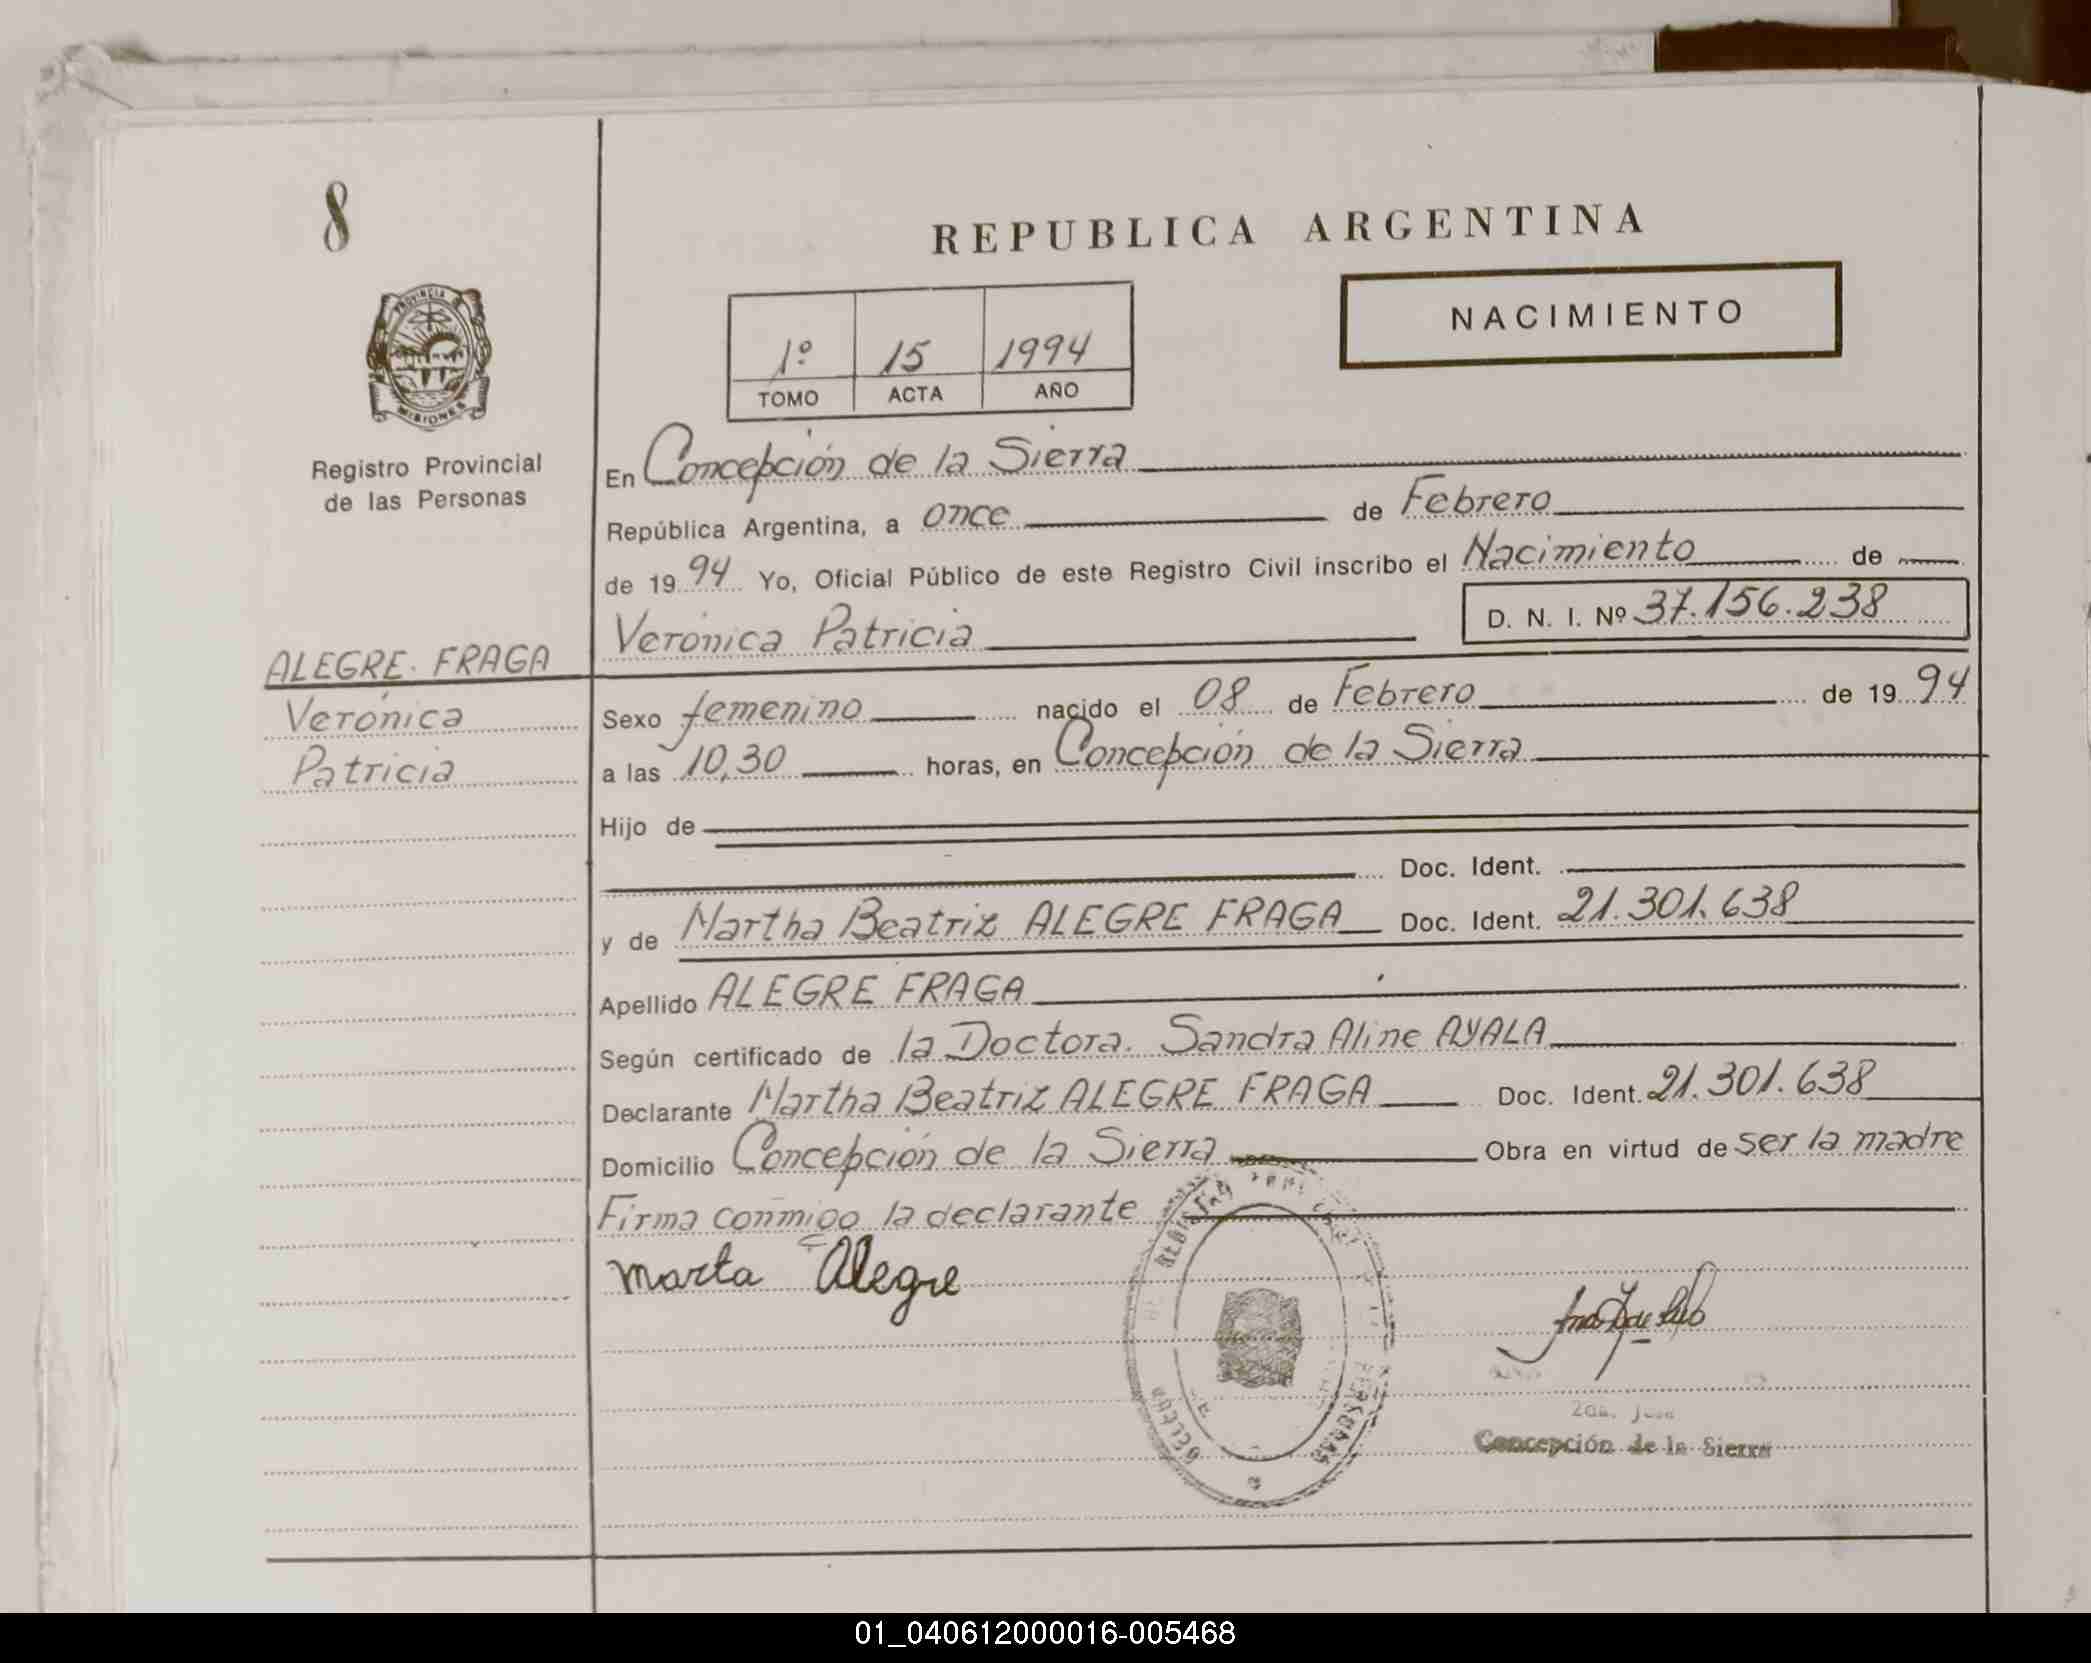 8
REPUBLICA ARGENTINA
NACIMIENTO
1º 15 1994
TOMO ACTA AÑO
PROVINCIA
MISIONES
Registro Provincial
de las Personas
En Concepción de la Sierra
República Argentina, a once de Febrero
de 1994 Yo, Oficial Público de este Registro Civil inscribo el Nacimiento de
Verónica Patricia D. N. I. Nº 37.156.238
ALEGRE FRAGA
Verónica
Patricia
Sexo femenino nacido el 08 de Febrero de 1994
a las 10,30 horas, en Concepción de la Sierra
Hijo de
Doc. Ident.
y de Martha Beatriz ALEGRE FRAGA Doc. Ident. 21.301.638
Apellido ALEGRE FRAGA
Según certificado de la Doctora. Sandra Aline AYALA
Declarante Martha Beatriz ALEGRE FRAGA Doc. Ident. 21.301.638
Domicilio Concepción de la Sierra Obra en virtud de ser la madre
Firma conmigo la declarante
marta Alegre
PERSONAS
Concepción de la Sierra
01_040612000016-005468